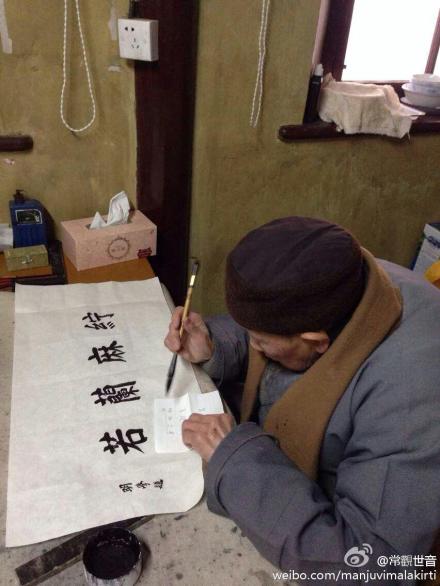 紵麻蘭若
明學題
@常觀世音
weibo.com/manjuvimalakirti